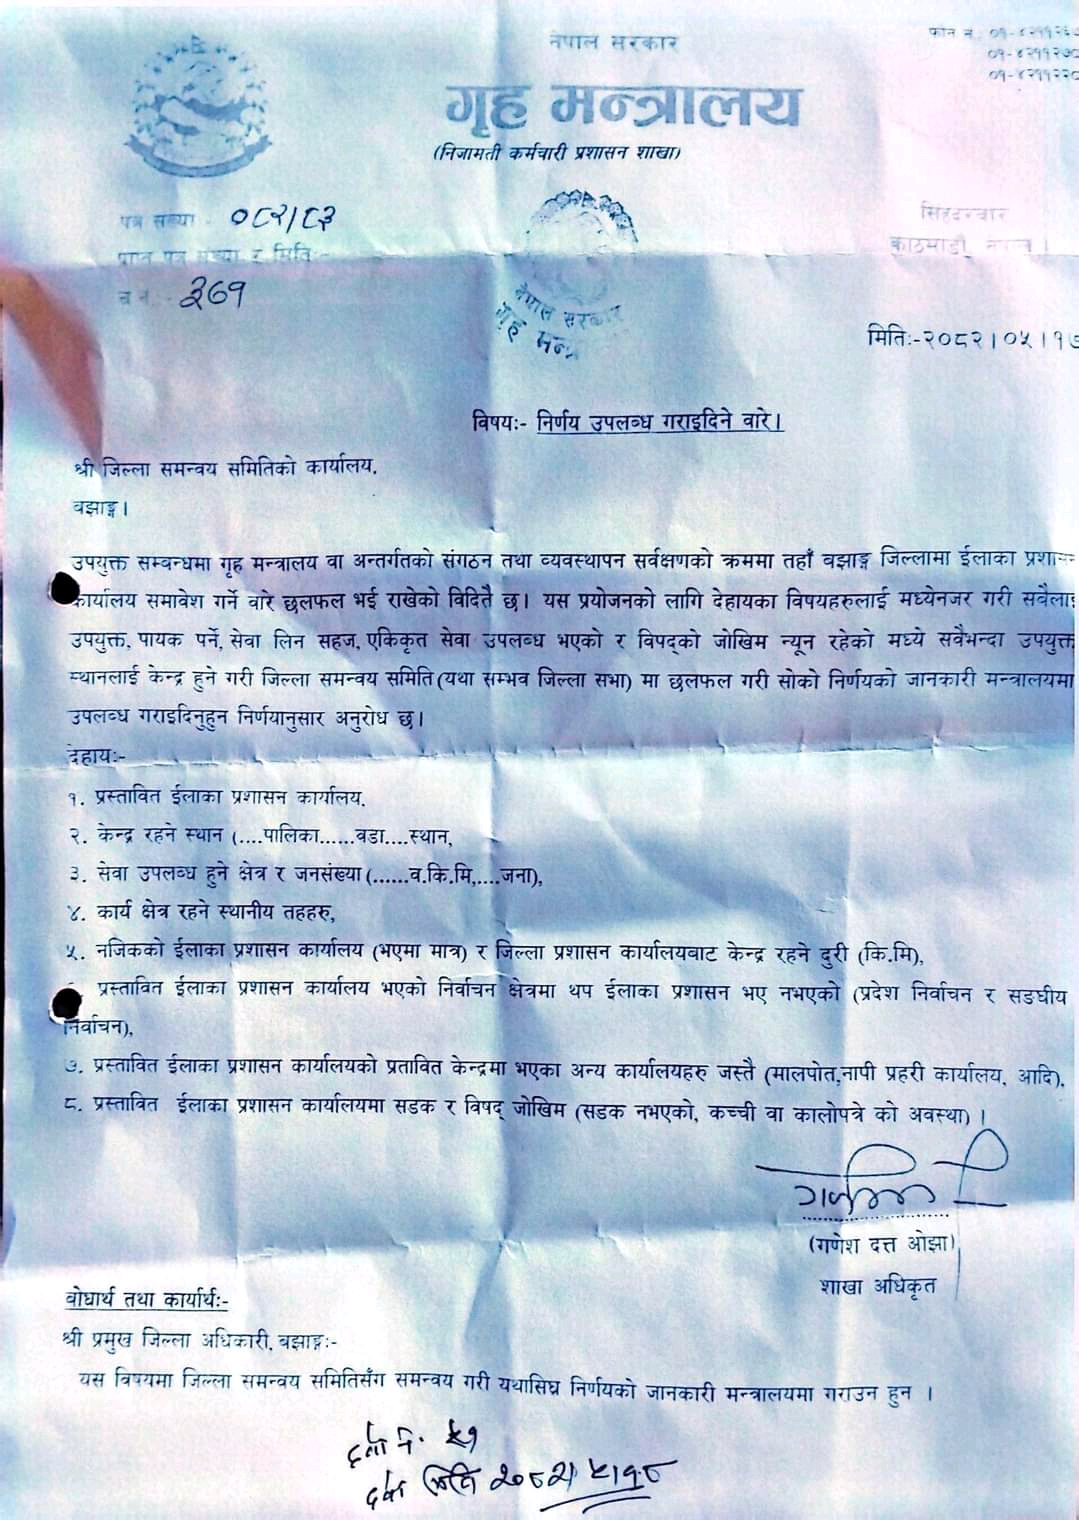 नेपाल सरकार
गृह मन्त्रालय
(निजामती कर्मचारी प्रशासन शाखा)
फोन नं. ०१-४२११२६
०१-४२११२७०
०१-४२११२२०
पत्र संख्या - ०८२/८३
प्राप्त पत्र संख्या र मितिः-
च.नं.- ३७१
सिंहदरवार
काठमाडौं, नेपाल ।
नेपाल सरकार
गृह मन्त्रा
मितिः-२०८२।०५।१७
विषयः- निर्णय उपलब्ध गराइदिने वारे।
श्री जिल्ला समन्वय समितिको कार्यालय,
बझाङ्ग।
उपयुक्त सम्बन्धमा गृह मन्त्रालय वा अन्तर्गतको संगठन तथा व्यवस्थापन सर्वेक्षणको क्रममा तहाँ बझाङ्ग जिल्लामा ईलाका प्रशासन
कार्यालय समावेश गर्ने वारे छलफल भई राखेको विदितै छ। यस प्रयोजनको लागि देहायका विषयहरुलाई मध्येनजर गरी सवैलाई
उपयुक्त, पायक पर्ने, सेवा लिन सहज, एकिकृत सेवा उपलब्ध भएको र विपद्को जोखिम न्यून रहेको मध्ये सवैभन्दा उपयुक्त
स्थानलाई केन्द्र हुने गरी जिल्ला समन्वय समिति(यथा सम्भव जिल्ला सभा) मा छलफल गरी सोको निर्णयको जानकारी मन्त्रालयमा
उपलब्ध गराइदिनुहुन निर्णयानुसार अनुरोध छ।
देहायः-
१. प्रस्तावित ईलाका प्रशासन कार्यालय,
२. केन्द्र रहने स्थान (....पालिका......वडा....स्थान,
३. सेवा उपलब्ध हुने क्षेत्र र जनसंख्या(......व.कि.मि,....जना),
४. कार्य क्षेत्र रहने स्थानीय तहहरु,
५. नजिकको ईलाका प्रशासन कार्यालय (भएमा मात्र) र जिल्ला प्रशासन कार्यालयबाट केन्द्र रहने दुरी (कि.मि),
प्रस्तावित ईलाका प्रशासन कार्यालय भएको निर्वाचन क्षेत्रमा थप ईलाका प्रशासन भए नभएको (प्रदेश निर्वाचन र सङघीय
निर्वाचन),
७. प्रस्तावित ईलाका प्रशासन कार्यालयको प्रतावित केन्द्रमा भएका अन्य कार्यालयहरु जस्तै (मालपोत,नापी प्रहरी कार्यालय, आदि),
८. प्रस्तावित ईलाका प्रशासन कार्यालयमा सडक र विपद् जोखिम (सडक नभएको, कच्ची वा कालोपत्रे को अवस्था) ।
(गणेश दत्त ओझा)
शाखा अधिकृत
बोधार्थ तथा कार्यार्थः-
श्री प्रमुख जिल्ला अधिकारी, बझाङ्गः-
यस विषयमा जिल्ला समन्वय समितिसँग समन्वय गरी यथासिघ्र निर्णयको जानकारी मन्त्रालयमा गराउन हुन ।
दर्ता नं. ५१
दर्ता मिति २०८२।५।१८